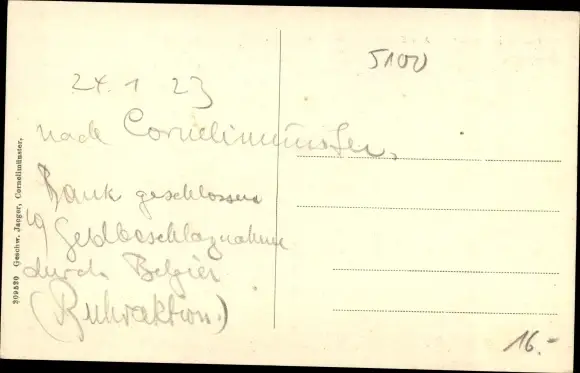 5100
24. 1 23
nach Cornelimünster,
Bank geschlossen
Geldbeschlagnahme
durch Belgier
(Ruhraktion.)
309520 Geschw. Jaeger, Cornelimünster.
16.-